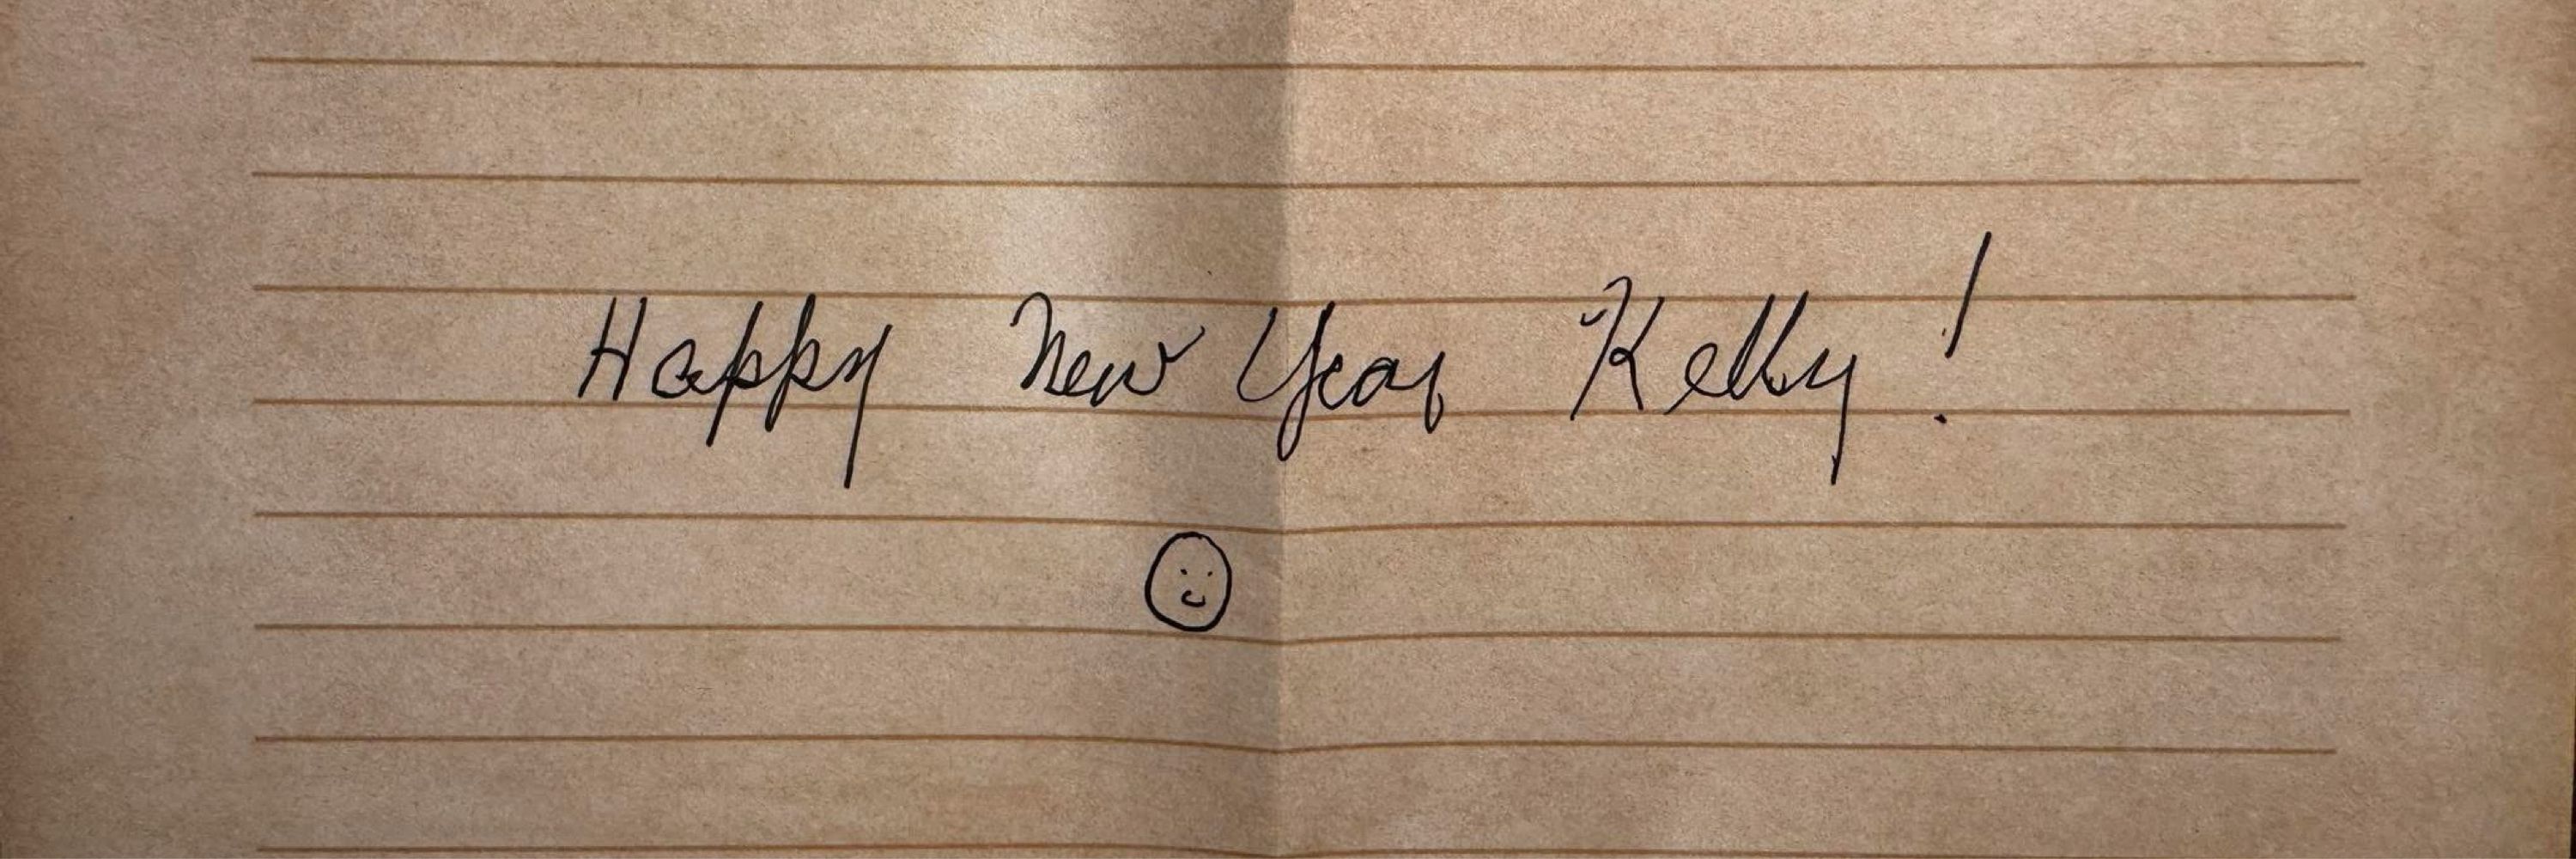 Happy New Year Kelly!